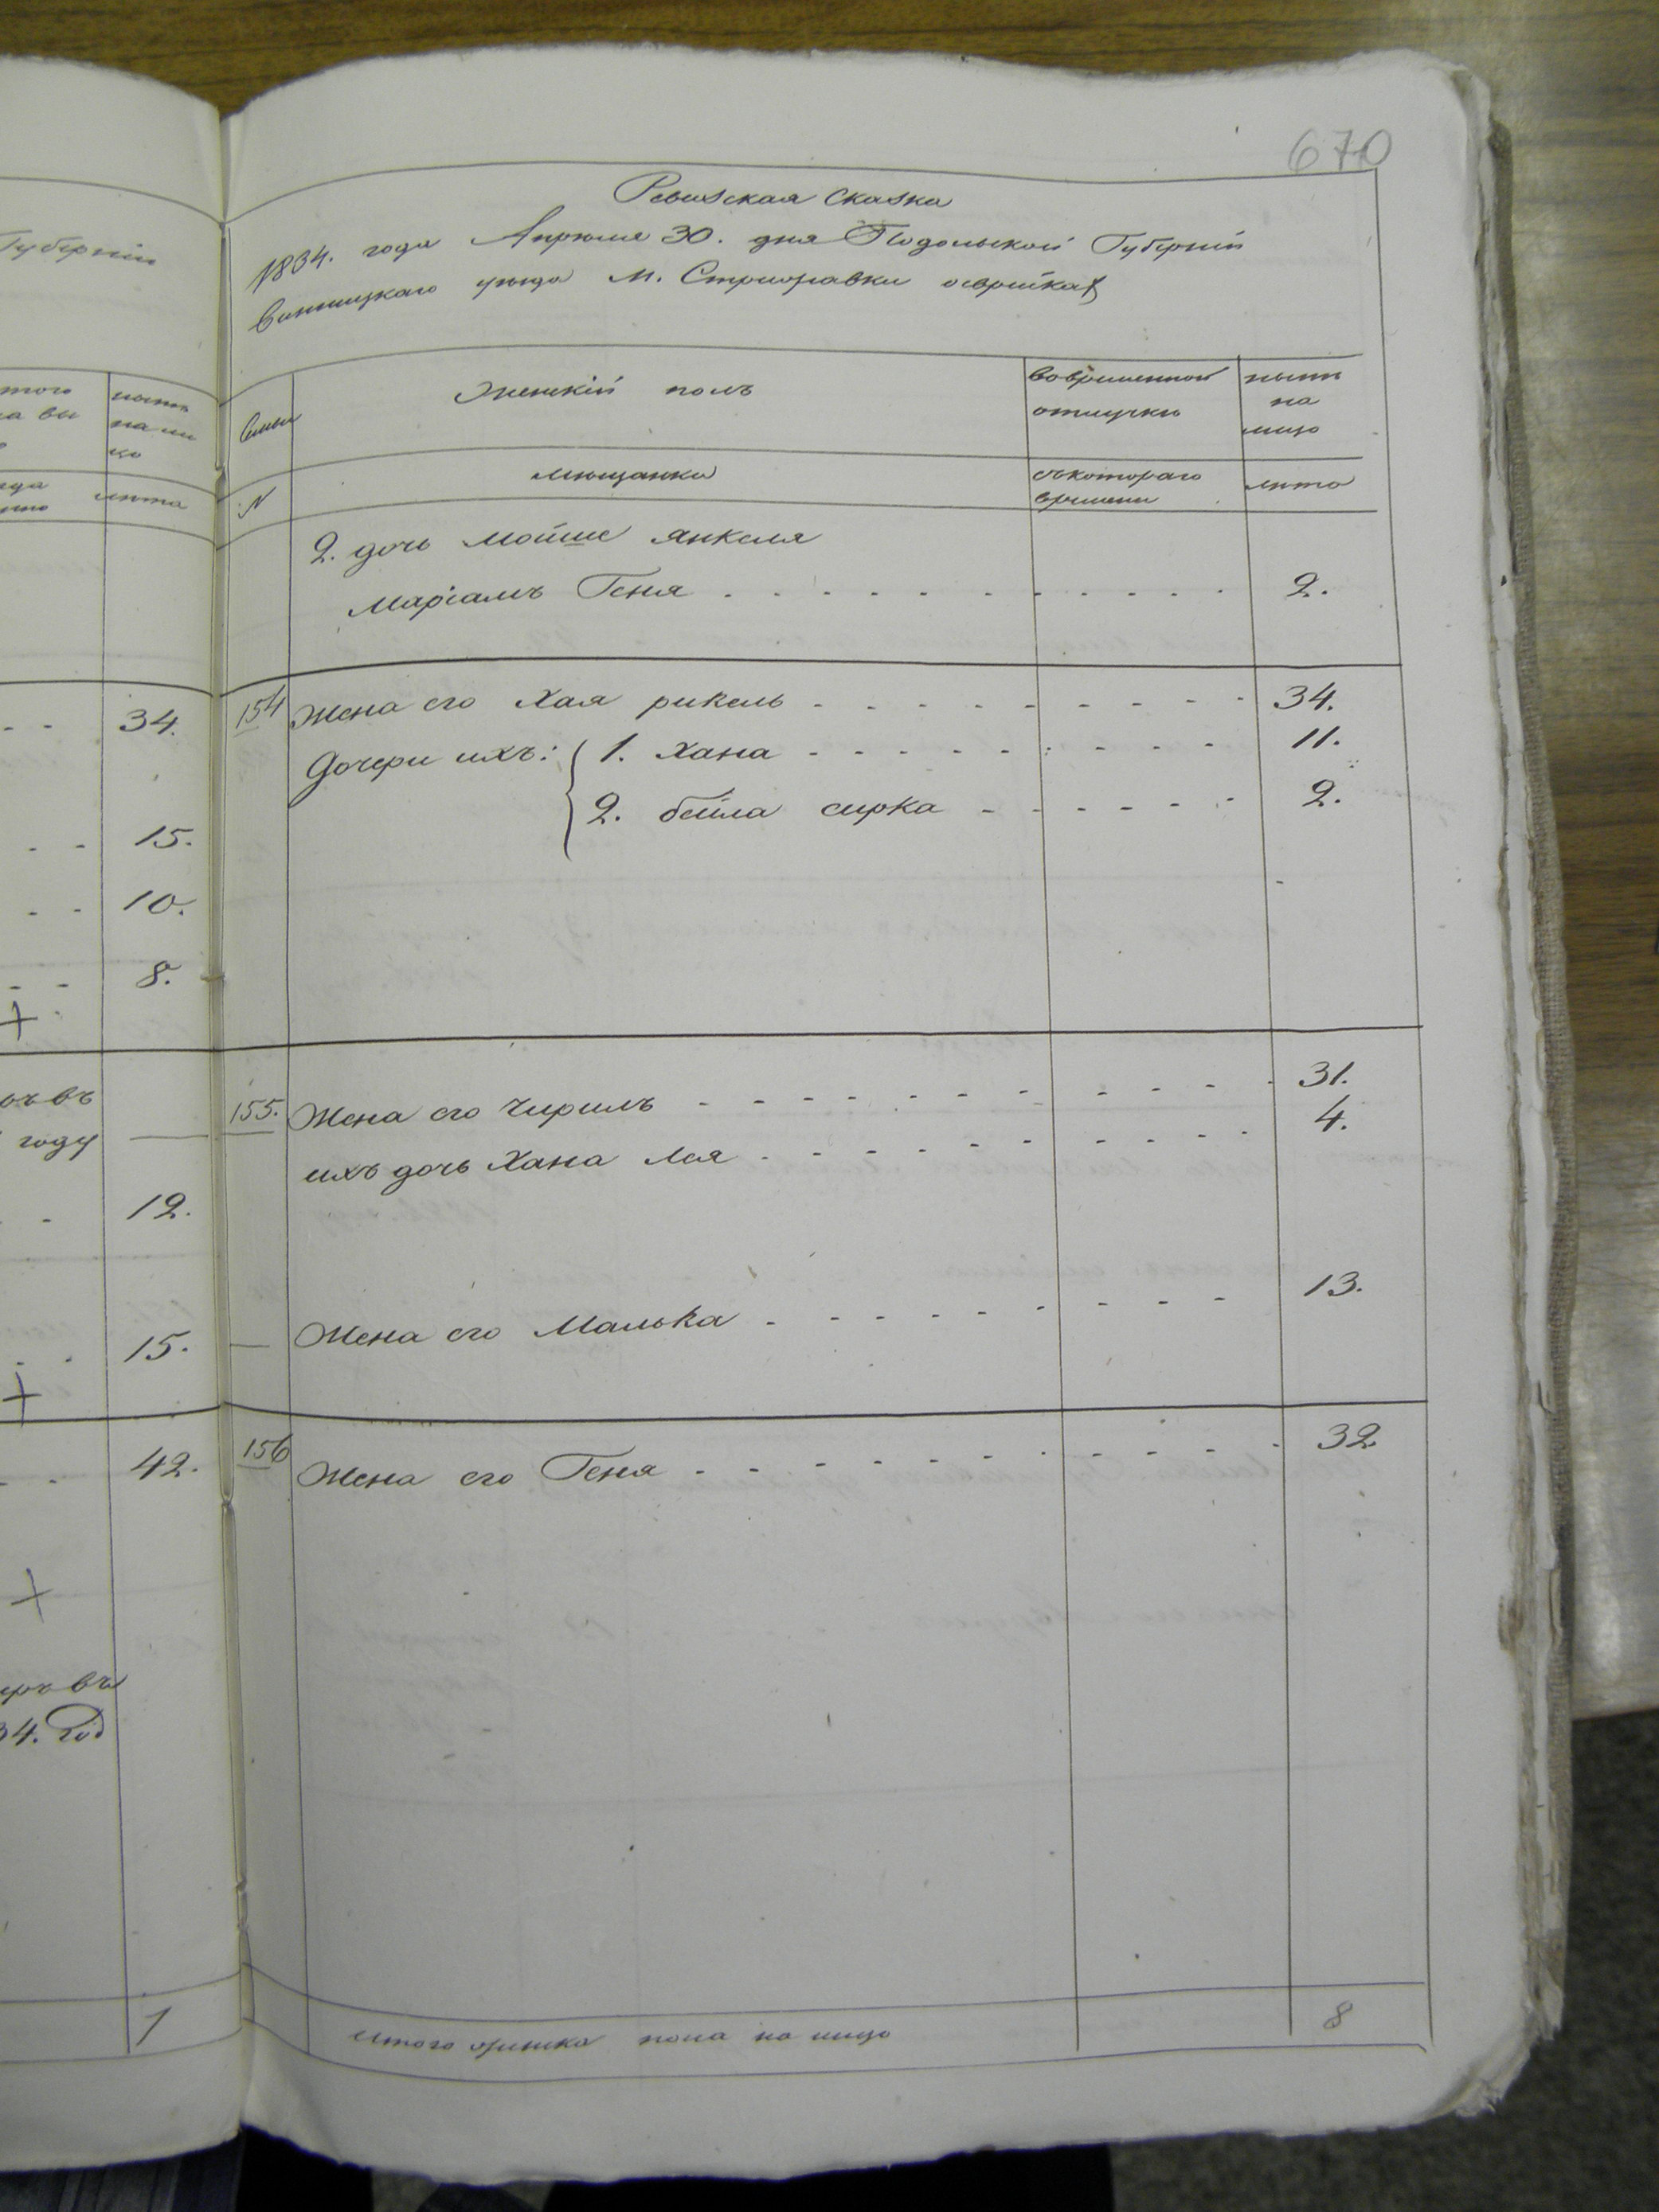 670
Губерніи
Ревизская сказка
1834. года Апреля 30. дня Подольской Губерніи
Винницкаго уезда М. Стрижавки о еврейкахъ
того
ныне
на ли
цо
лета
Семьи
Женскій полъ
во временной
отлучке
ныне
на
лицо
N
мещанки
съ котораго
времени
лета
2. дочь Мойше Янкеля
Маріамъ Геня 2.
34.
154 Жена его Хая рикель 34.
Дочери ихъ: 1. Хана 11.
2. бейла сирка 2.
15.
10.
8.
155. Жена его Чирилъ 31.
ихъ дочь Хана Лея 4.
году
12.
Жена его Малька 13.
15.
42.
156 Жена его Геня 32.
34. год
1
итого женска пола на лицо 8